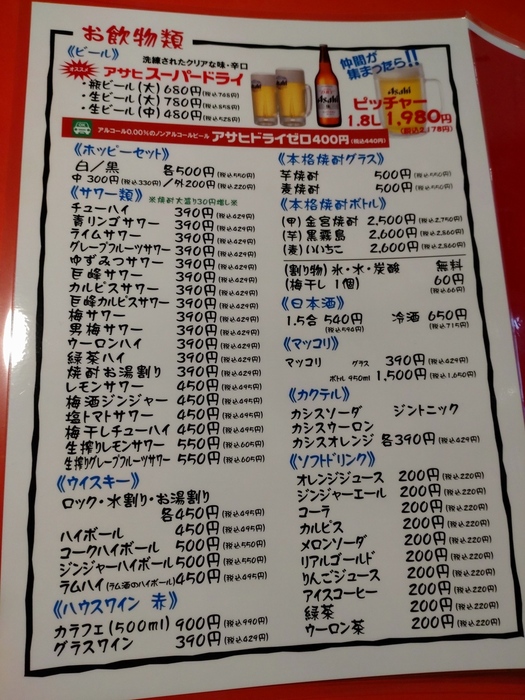 お飲物類
《ビール》
洗練されたクリアな味・辛口
オススメ
アサヒスーパードライ
・瓶ビール(大) 680円(税込748円)
・生ビール(大) 780円(税込858円)
・生ビール(中) 480円(税込528円)
仲間が集まったら!!
Asahi
ピッチャー
1.8L 1,980円
(税込2,178円)
アルコール0.00%のノンアルコールビール アサヒドライゼロ400円(税込440円)
《ホッピーセット》
白/黒 各500円(税込550円)
中 300円(税込330円)/外200円(税込220円)
《サワー類》 ※焼酎大盛り30円増し※
チューハイ 390円(税込429円)
青リンゴサワー 390円(税込429円)
ライムサワー 390円(税込429円)
グレープフルーツサワー 390円(税込429円)
ゆずみつサワー 390円(税込429円)
巨峰サワー 390円(税込429円)
カルピスサワー 390円(税込429円)
巨峰カルピスサワー 390円(税込429円)
梅サワー 390円(税込429円)
男梅サワー 390円(税込429円)
ウーロンハイ 390円(税込429円)
緑茶ハイ 390円(税込429円)
焼酎お湯割り 390円(税込429円)
レモンサワー 450円(税込495円)
梅酒ジンジャー 450円(税込495円)
塩トマトサワー 450円(税込495円)
梅干しチューハイ 450円(税込495円)
生搾りレモンサワー 550円(税込605円)
生搾りグレープフルーツサワー 550円(税込605円)
《ウイスキー》
ロック・水割り・お湯割り
各450円(税込495円)
ハイボール 450円(税込495円)
コークハイボール 500円(税込550円)
ジンジャーハイボール 500円(税込550円)
ラムハイ(ラム酒のハイボール)450円(税込495円)
《ハウスワイン 赤》
カラフェ(500ml) 900円(税込990円)
グラスワイン 390円(税込429円)
《本格焼酎グラス》
芋焼酎 500円(税込550円)
麦焼酎 500円(税込550円)
《本格焼酎ボトル》
(甲) 金宮焼酎 2,500円(税込2,750円)
(芋) 黒霧島 2,600円(税込2,860円)
(麦) いいちこ 2,600円(税込2,860円)
(割り物) 氷・水・炭酸 無料
(梅干し 1個) 60円
(税込66円)
《日本酒》
1.5合 540円 冷酒 650円
(税込594円) (税込715円)
《マッコリ》
マッコリ グラス 390円(税込429円)
ボトル 950ml 1,500円(税込1,650円)
《カクテル》
カシスソーダ ジントニック
カシスウーロン
カシスオレンジ 各390円(税込429円)
《ソフトドリンク》
オレンジジュース 200円(税込220円)
ジンジャーエール 200円(税込220円)
コーラ 200円(税込220円)
カルピス 200円(税込220円)
メロンソーダ 200円(税込220円)
リアルゴールド 200円(税込220円)
りんごジュース 200円(税込220円)
アイスコーヒー 200円(税込220円)
緑茶 200円(税込220円)
ウーロン茶 200円(税込220円)